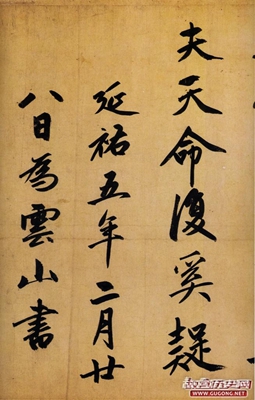 夫天命復奚疑
延祐五年二月廿
八日為雲山書
WWW.GUGONG.NET